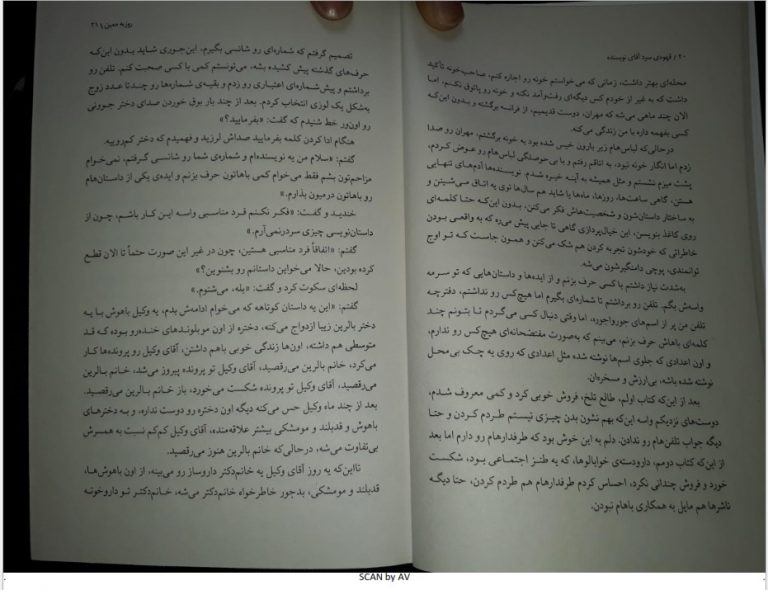 ۲۰ / قهوه‌ی سرد آقای نویسنده
محله‌ای بهتر داشت، زمانی که می‌خواستم خونه رو اجاره کنم، صاحب‌خونه تأکید
داشت که به غیر از خودم کس دیگه‌ای رفت‌وآمد نکنه و خونه رو پاتوق نکنم، اما
الان چند ماهی می‌شه که مهران، دوست قدیمیم، از فرانسه برگشته و بدون این‌که
کسی بفهمه داره با من زندگی می‌کنه.
درحالی‌که لباس‌هام زیر بارون خیس شده بود به خونه برگشتم، مهران رو صدا
زدم اما انگار خونه نبود، به اتاقم رفتم و با بی‌حوصلگی لباس‌هام رو عوض کردم،
پشت میزم نشستم و مثل همیشه به آینه خیره شدم. نویسنده‌ها آدم‌های تنهایی
هستن، گاهی ساعت‌ها، روزها، ماه‌ها یا شاید هم سال‌ها توی یه اتاق می‌شینن و
به ساختار داستان‌شون و شخصیت‌هاش فکر می‌کنن، بدون این‌که حتا کلمه‌ای
روی کاغذ بنویسن، این خیال‌پردازی گاهی تا جایی پیش می‌ره که به واقعی بودن
خاطراتی که خودشون تجربه کردن هم شک می‌کنن و همون جاست که تو اوج
توانمندی، پوچی دامنگیرشون می‌شه.
به‌شدت نیاز داشتم با کسی حرف بزنم و از ایده‌ها و داستان‌هایی که تو سرمه
واسه‌ش بگم. تلفن رو برداشتم تا شماره‌ای بگیرم اما هیچ‌کس رو نداشتم، دفترچه
تلفن من پر از اسم‌های جورواجوره، اما وقتی دنبال کسی می‌گردم تا بتونم چند
کلمه‌ای باهاش حرف بزنم، می‌بینم که به‌صورت مفتضحانه‌ای هیچ‌کس رو ندارم،
و اون اعدادی که جلوی اسم‌ها نوشته شده مثل اعدادی که روی یه چک بی‌محل
نوشته شده باشه، بی‌ارزش و مسخره‌ان.
بعد از این‌که کتاب اولم، طالع تلخ، فروش خوبی کرد و کمی معروف شدم،
دوست‌های نزدیکم واسه این‌که بهم نشون بدن چیزی نیستم طردم کردن و حتا
دیگه جواب تلفن‌هام رو ندادن. دلم به این خوش بود که طرفدارهام رو دارم اما بعد
از این‌که کتاب دومم، دارودسته‌ی خوابالوها، که یه طنز اجتماعی بود، شکست
خورد و فروش چندانی نکرد، احساس کردم طرفدارهام هم طردم کردن، حتا دیگه
ناشرها هم مایل به همکاری باهام نبودن.
روزبه معین / ۲۱
تصمیم گرفتم که شماره‌ای رو شانسی بگیرم، این‌جوری شاید بدون این‌که
حرف‌های گذشته پیش کشیده بشه، می‌تونستم کمی با کسی صحبت کنم. تلفن رو
برداشتم و پیش‌شماره‌ای اعتباری رو زدم و بقیه‌ی شماره‌ها رو چندتا عدد زوج
به‌شکل یک لوزی انتخاب کردم. بعد از چند بار بوق خوردن صدای دختر جوونی
رو اون‌ور خط شنیدم که گفت: «بفرمایید؟»
هنگام ادا کردن کلمه بفرمایید صداش لرزید و فهمیدم که دختر کم‌روییه.
گفتم: «سلام من یه نویسنده‌ام و شماره‌ی شما رو شانسی گرفتم، نمی‌خوام
مزاحم‌تون بشم فقط می‌خوام کمی باهاتون حرف بزنم و ایده‌ی یکی از داستان‌هام
رو باهاتون درمیون بذارم.»
خندید و گفت: «فکر نکنم فرد مناسبی واسه این کار باشم، چون از
داستان‌نویسی چیزی سردرنمی‌آرم.»
گفتم: «اتفاقاً فرد مناسبی هستین، چون در غیر این صورت حتماً تا الان قطع
کرده بودین، حالا می‌خواین داستانم رو بشنوین؟»
لحظه‌ای سکوت کرد و گفت: «بله، می‌شنوم.»
گفتم: «این یه داستان کوتاهه که می‌خوام ادامه‌ش بدم، یه وکیل باهوش با یه
دختر بالرین زیبا ازدواج می‌کنه، دختره از اون موبلوندهای خنده‌رو بوده که قد
متوسطی هم داشته، اون‌ها زندگی خوبی باهم داشتن، آقای وکیل رو پرونده‌ها کار
می‌کرد، خانم بالرین می‌رقصید، آقای وکیل تو پرونده پیروز می‌شد، خانم بالرین
می‌رقصید، آقای وکیل تو پرونده شکست می‌خورد، باز خانم بالرین می‌رقصید.
بعد از چند ماه وکیل حس می‌کنه دیگه اون دختره رو دوست نداره، و به دخترهای
باهوش و قدبلند و مومشکی بیشتر علاقه‌منده، آقای وکیل کم‌کم نسبت به همسرش
بی‌تفاوت می‌شه، درحالی‌که خانم بالرین هنوز می‌رقصید.
تااین‌که یه روز آقای وکیل یه خانم‌دکتر داروساز رو می‌بینه، از اون باهوش‌ها،
قدبلند و مومشکی، بدجور خاطرخواه خانم‌دکتر می‌شه، خانم‌دکتر تو داروخونه
SCAN by AV